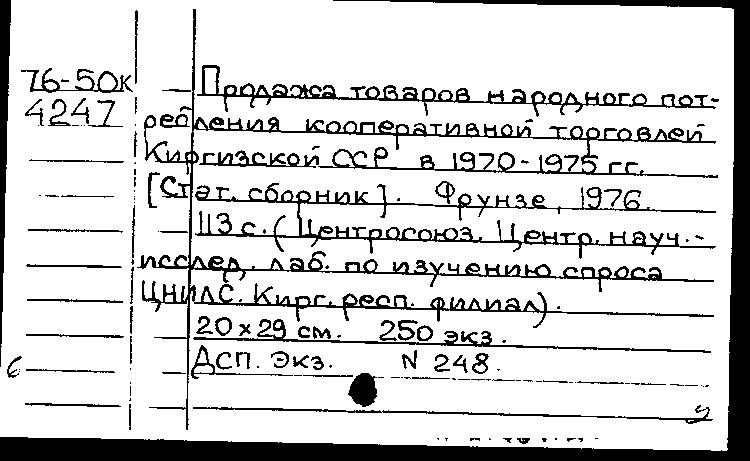 76-50к Продажа товаров народного пот-
4247 ребления кооперативной торговлей
Киргизской ССР в 1970-1975 гг.
[Стат. сборник]. Фрунзе, 1976.
113 с. (Центросоюз. Центр. науч.-
исслед. лаб. по изучению спроса
ЦНИЛС. Кирг. респ. филиал).
20 x 29 см. 250 экз.
6 ДСП. Экз. N 248.